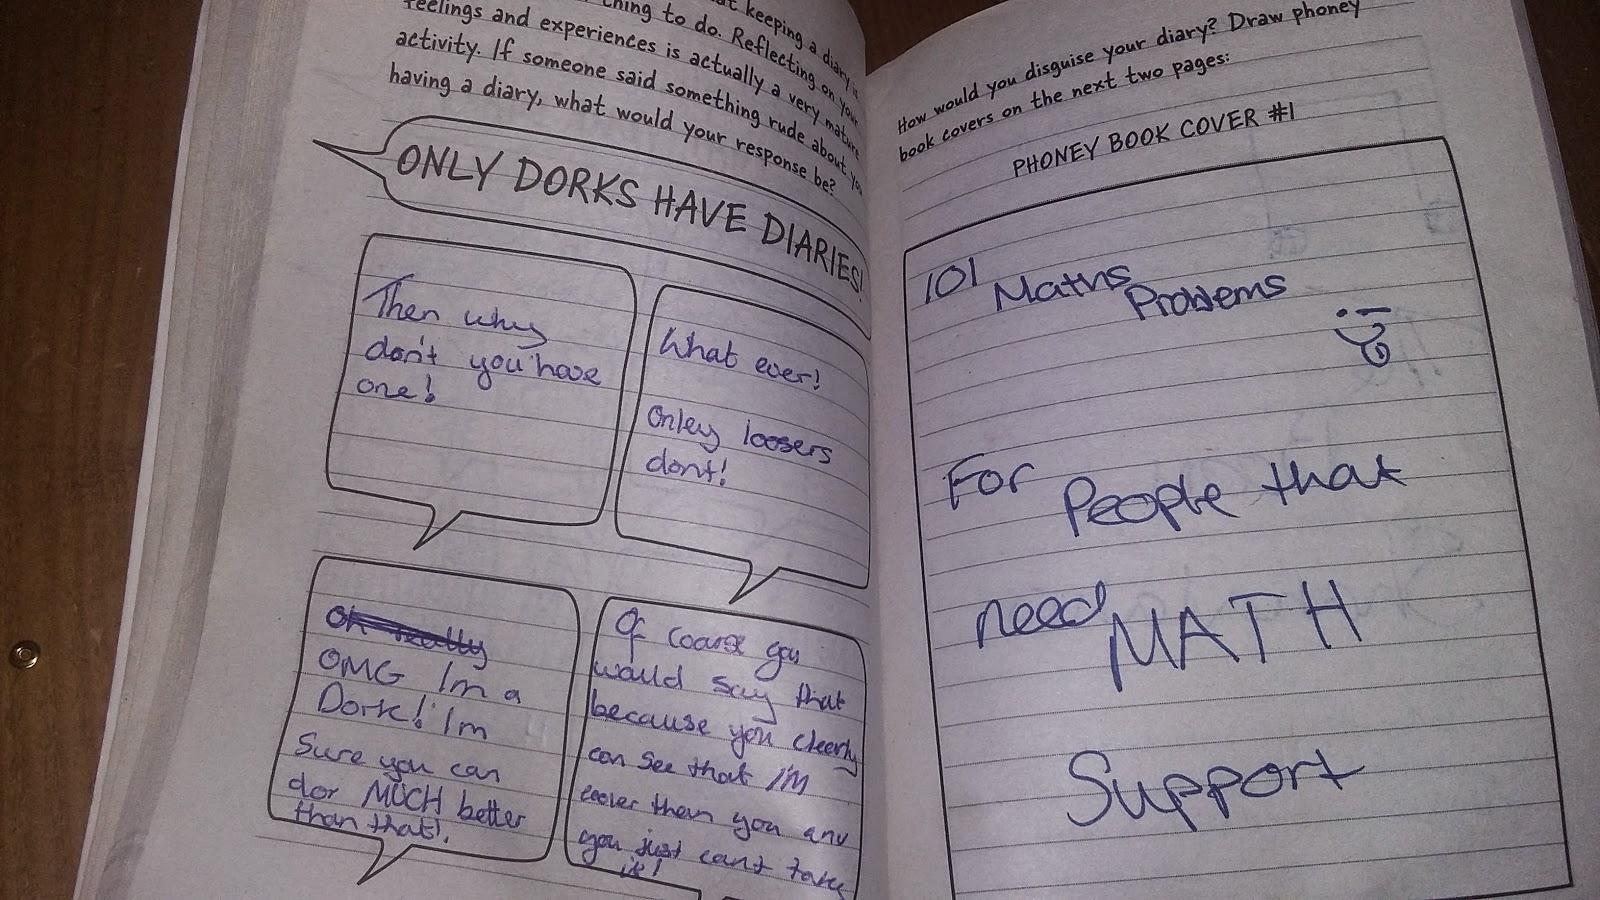 at keeping a diary is
thing to do. Reflecting on your
feelings and experiences is actually a very mature
activity. If someone said something rude about you
having a diary, what would your response be?
ONLY DORKS HAVE DIARIES!
Then why
don't you have
one!
What ever!
Onley loosers
dont!
Oh really
OMG I'm a
Dork! I'm
Sure you can
dor MUCH better
than that!
Of coarse you
would say that
because you cleerly
can see that I'M
cooler then you any
you just can't take
it!
How would you disguise your diary? Draw phoney
book covers on the next two pages:
PHONEY BOOK COVER #1
101 Maths Problems
For People that
need MATH
Support